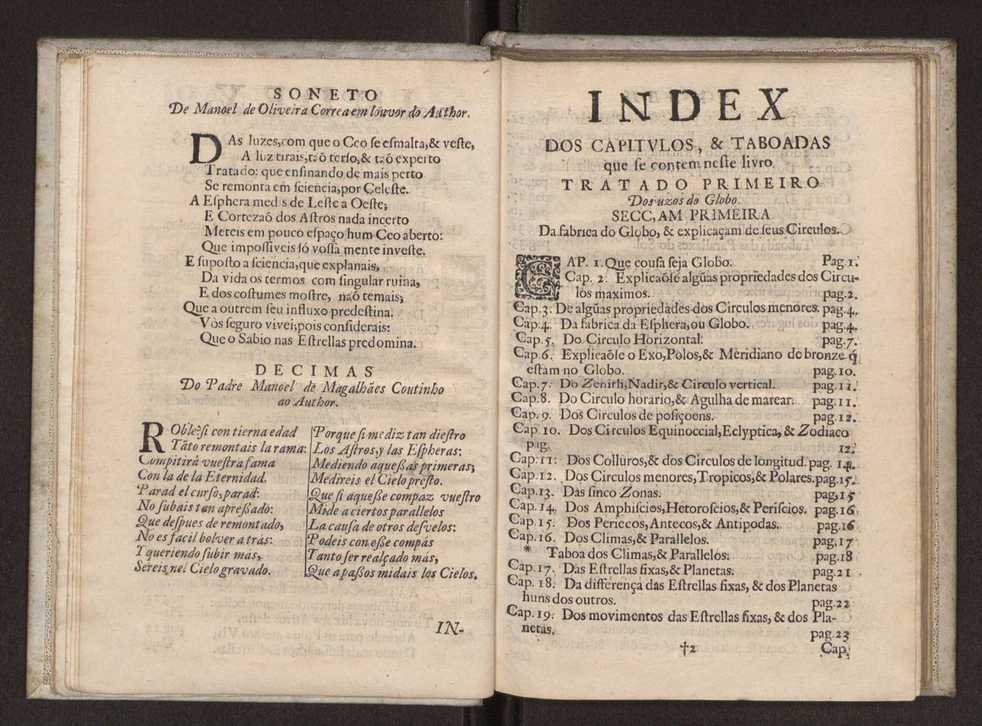 SONETO
De Manoel de Oliveira Correa em louvor do Author.
DAs luzes, com que o Ceo se esmalta, & veste,
A luz tirais, tão terso, & tão experto
Tratado: que ensinando de mais perto
Se remonta em sciencia, por Celeste.
A Esphera medis de Leste a Oeste;
E Cortezaõ dos Astros nada incerto
Meteis em pouco espaço hum Ceo aberto:
Que impossiveis só vossa mente investe.
E suposto a sciencia, que explanais,
Da vida os termos com singular ruina,
E dos costumes mostre, naõ temais;
Que a outrem seu influxo predestina.
Vòs seguro vivei; pois considerais:
Que o Sabio nas Estrellas predomina.
DECIMAS
Do Padre Manoel de Magalhães Coutinho
ao Author.
ROble, si con tierna edad
Tāto remontais la rama:
Compitirà vuestra fama
Con la de la Eternidad.
Parad el curso, parad:
No subais tan apreßado:
Que despues de remontado,
No es facil bolver atràs:
I queriendo subir mas,
Sereis nel Cielo gravado.
Porque si mediz tan diestro
Los Astros, y las Espheras:
Mediendo aqueßas primeras,
Medireis el Cielo presto.
Que si aqueße compaz vuestro
Mide a ciertos parallelos
La causa de otros desvelos:
Podeis con eße compás
Tanto ser realçado más,
Que a paßos midais los Cielos.
IN-
INDEX
DOS CAPITVLOS, & TABOADAS
que se contem neste livro
TRATADO PRIMEIRO
Dos uzos do Globo.
SECC,AM PRIMEIRA
Da fabrica do Globo, & explicaçam de seus Circulos.
CAP. 1. Que cousa seja Globo. Pag. 1.
Cap. 2. Explicaõse algũas propriedades dos Circu-
los maximos. pag. 2.
Cap. 3. De algũas propriedades dos Circulos menores. pag. 4.
Cap. 4. Da fabrica da Esphera, ou Globo. pag. 4.
Cap. 5. Do Circulo Horizontal. pag. 7.
Cap. 6. Explicaõse o Exo, Polos, & Meridiano de bronze q̃
estam no Globo. pag. 10.
Cap. 7. Do Zenith, Nadir, & Circulo vertical. pag. 11.
Cap. 8. Do Circulo horario, & Agulha de marear. pag. 11.
Cap. 9. Dos Circulos de posiçoens. pag. 12.
Cap. 10. Dos Circulos Equinoccial, Eclyptica, & Zodiaco
pag. 12.
Cap. 11: Dos Colluros, & dos Circulos de longitud. pag. 14.
Cap. 12. Dos Circulos menores, Tropicos, & Polares. pag. 15.
Cap. 13. Das sinco Zonas. pag. 15
Cap. 14. Dos Amphiscios, Heteroscios, & Periscios. pag. 16
Cap. 15. Dos Periecos, Antecos, & Antipodas. pag. 16
Cap. 16. Dos Climas, & Parallelos. pag, 17
* Taboa dos Climas, & Parallelos. pag. 18
Cap. 17. Das Estrellas fixas, & Planetas. pag. 21
Cap. 18. Da differença das Estrellas fixas, & dos Planetas
huns dos outros. pag. 22
Cap. 19. Dos movimentos das Estrellas fixas, & dos Pla-
netas. pag. 23
†2 Cap.